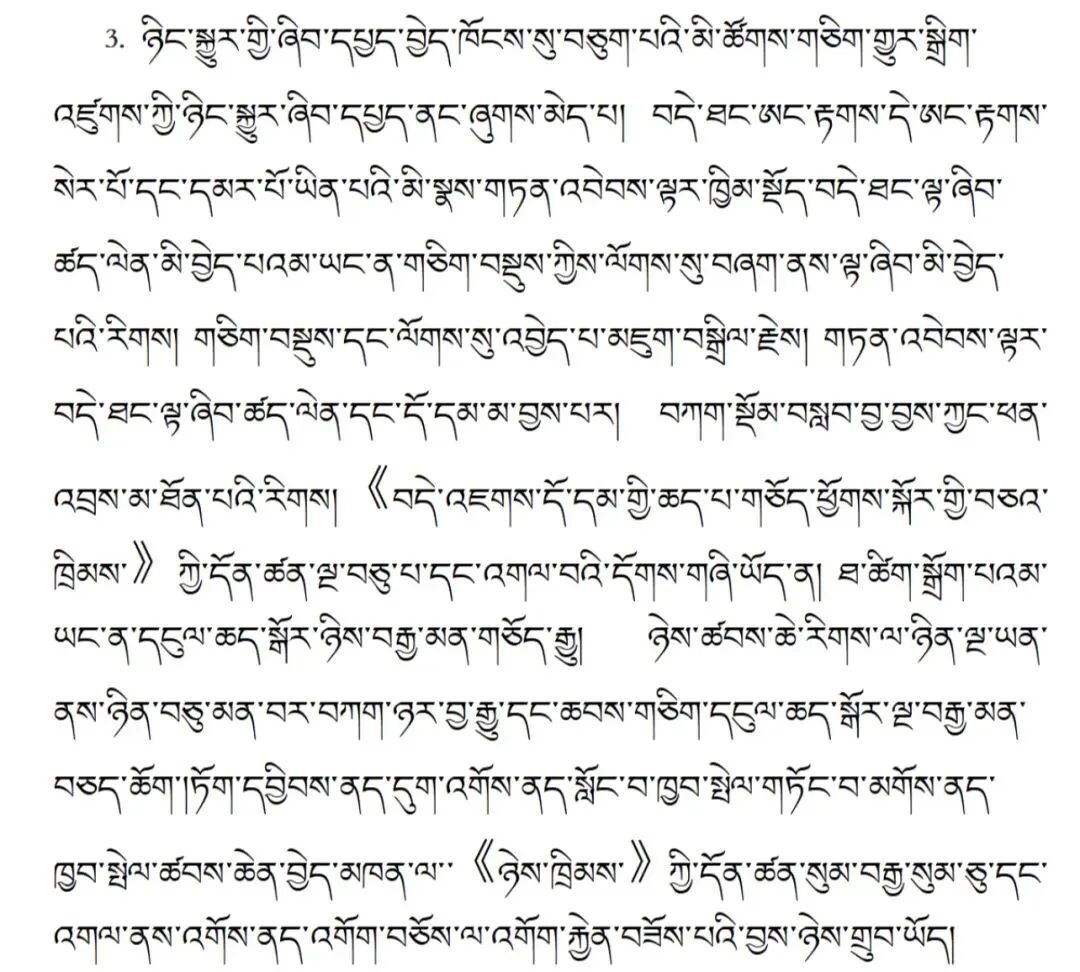 3. ཉིང་སྐྱུར་གྱི་ཞིབ་དཔྱད་བྱེད་ཁོངས་སུ་བཅུག་པའི་མི་ཚོགས་གཅིག་གྱུར་སྒྲིག་
འཛུགས་ཀྱི་ཉིང་སྐྱུར་ཞིབ་དཔྱད་ནང་ཞུགས་མེད་པ། བདེ་ཐང་ཨང་རྟགས་དེ་ཨང་རྟགས་
སེར་པོ་དང་དམར་པོ་ཡིན་པའི་མི་སྣས་གཏན་འབེབས་ལྟར་ཁྱིམ་སྡོད་བདེ་ཐང་ལྟ་ཞིབ་
ཚད་ལེན་མི་བྱེད་པའམ་ཡང་ན་གཅིག་བསྡུས་ཀྱིས་ལོགས་སུ་བཞག་ནས་ལྟ་ཞིབ་མི་བྱེད་
པའི་རིགས། གཅིག་བསྡུས་དང་ལོགས་སུ་འབྱེད་པ་མཇུག་བསྒྲིལ་རྗེས། གཏན་འབེབས་ལྟར་
བདེ་ཐང་ལྟ་ཞིབ་ཚད་ལེན་དང་དོ་དམ་མ་བྱས་པར། བཀག་སྡོམ་བསླབ་བྱ་བྱས་ཀྱང་ཕན་
འབྲས་མ་ཐོན་པའི་རིགས། 《བདེ་འཇགས་དོ་དམ་གྱི་ཆད་པ་གཅོད་ཕྱོགས་སྐོར་གྱི་བཅའ་
ཁྲིམས་》 ཀྱི་དོན་ཚན་ལྔ་བཅུ་པ་དང་འགལ་བའི་དོགས་གཞི་ཡོད་ན། ཐ་ཚིག་སྒྲོག་པའམ་
ཡང་ན་དངུལ་ཆད་སྒོར་ཉིས་བརྒྱ་མན་གཅོད་རྒྱུ། ཉེས་ཚབས་ཆེ་རིགས་ལ་ཉིན་ལྔ་ཡན་
ནས་ཉིན་བཅུ་མན་བར་བཀག་ཉར་བྱ་རྒྱུ་དང་ཆབས་གཅིག་དངུལ་ཆད་སྒོར་ལྔ་བརྒྱ་མན་
བཅད་ཆོག །ཏོག་དབྱིབས་ནད་དུག་འགོས་ནད་སློང་བ་ཁྱབ་སྤེལ་གཏོང་བ་མགོས་ནད་
ཁྱབ་སྤེལ་ཚབས་ཆེན་བྱེད་མཁན་ལ་་ 《ཉེས་ཁྲིམས་》 ཀྱི་དོན་ཚན་སུམ་བརྒྱ་སུམ་ཅུ་དང་
འགལ་ནས་འགོས་ནད་འགོག་བཅོས་ལ་འགོག་རྐྱེན་བཟོས་པའི་བྱས་ཉེས་གྲུབ་ཡོད།